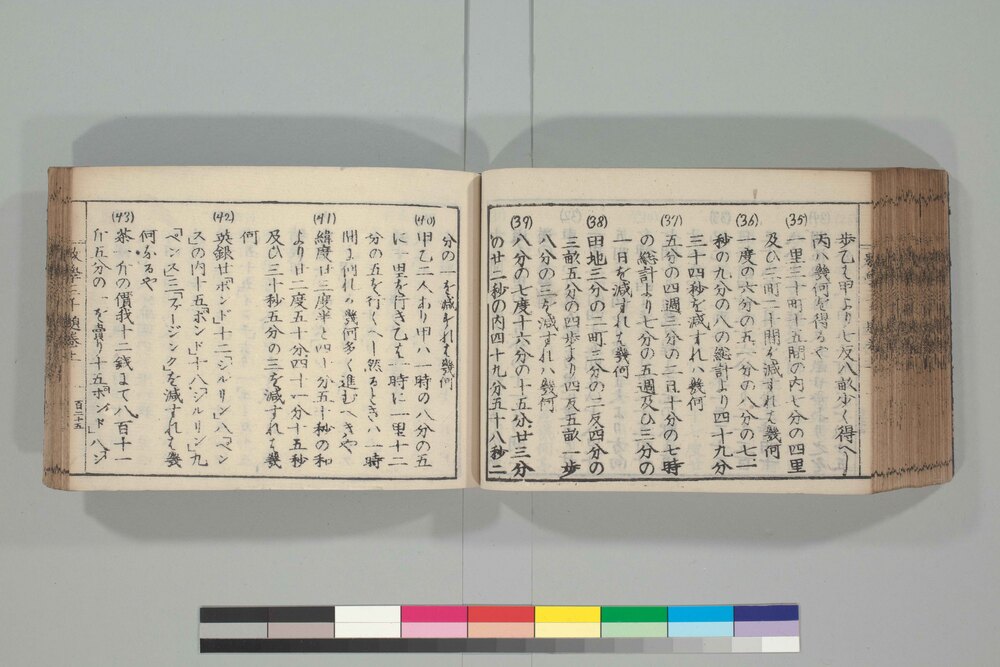 歩乙を甲より七反八畝少く得べし
丙ハ幾何を得るや
(35)
一里三十町十五間の内七分の四里
及ひ三町二十間を減すれは幾何
(36)
一度の六分の五一分の八分の七一
秒の九分の八の総計より四十九分
三十四秒を減すれハ幾何
(37)
五分の四週三分の二日十分の七時
の総計より七分の五週及ひ三分の
一日を減すれは幾何
(38)
田地三分の二町三分の二反四分の
三畝五分の四歩より四反五畝一歩
八分の三を減すれハ幾何
(39)
八分の七度十六分の十五分廿三分
の廿二秒の内四十九分五十八秒二
分の一を減すれは幾何
(40)
甲乙二人あり甲ハ一時の八分の五
に一里を行き乙は一時に一里十二
分の五を行くへし然るときハ一時
間に何れか幾何多く進むへきや
(41)
緯度廿三度半と四十分五十秒の和
より廿二度五十分四十一分十五秒
及ひ三十秒五分の三を減すれは幾
何
(42)
英銀廿「ポンド」十二「シルリン」八「ペン
ス」の内十五「ポンド」十八「シルリン」九
「ペンス」三「フージンク」を減すれは幾
何なるや
(43)
茶一斤の價我十二銭にて八百十一
斤五分の一を賣り十五「ポンド」八「シ
百二十五